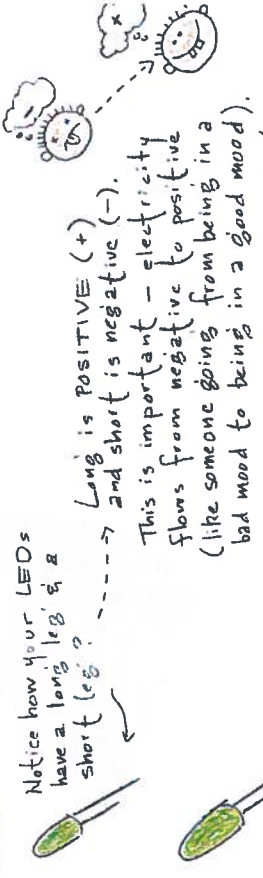 Notice how your LEDs
have a long leg & a
short leg?
Long is POSITIVE (+)
and short is negative (-).
This is important - electricity
flows from negative to positive
(like someone going from being in a
bad mood to being in a good mood).